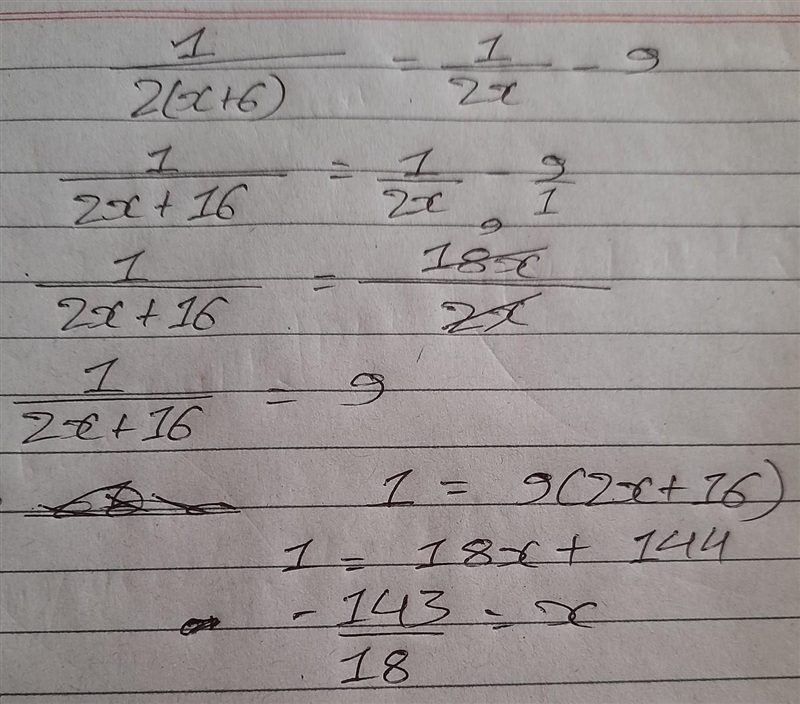 1/2(x+6) = 1/2x - 9
1/2x+16 = 1/2x - 9/1
1/2x+16 = 18x/2x 9
1/2x+16 = 9
1 = 9(2x+16)
1 = 18x + 144
-143/18 = x